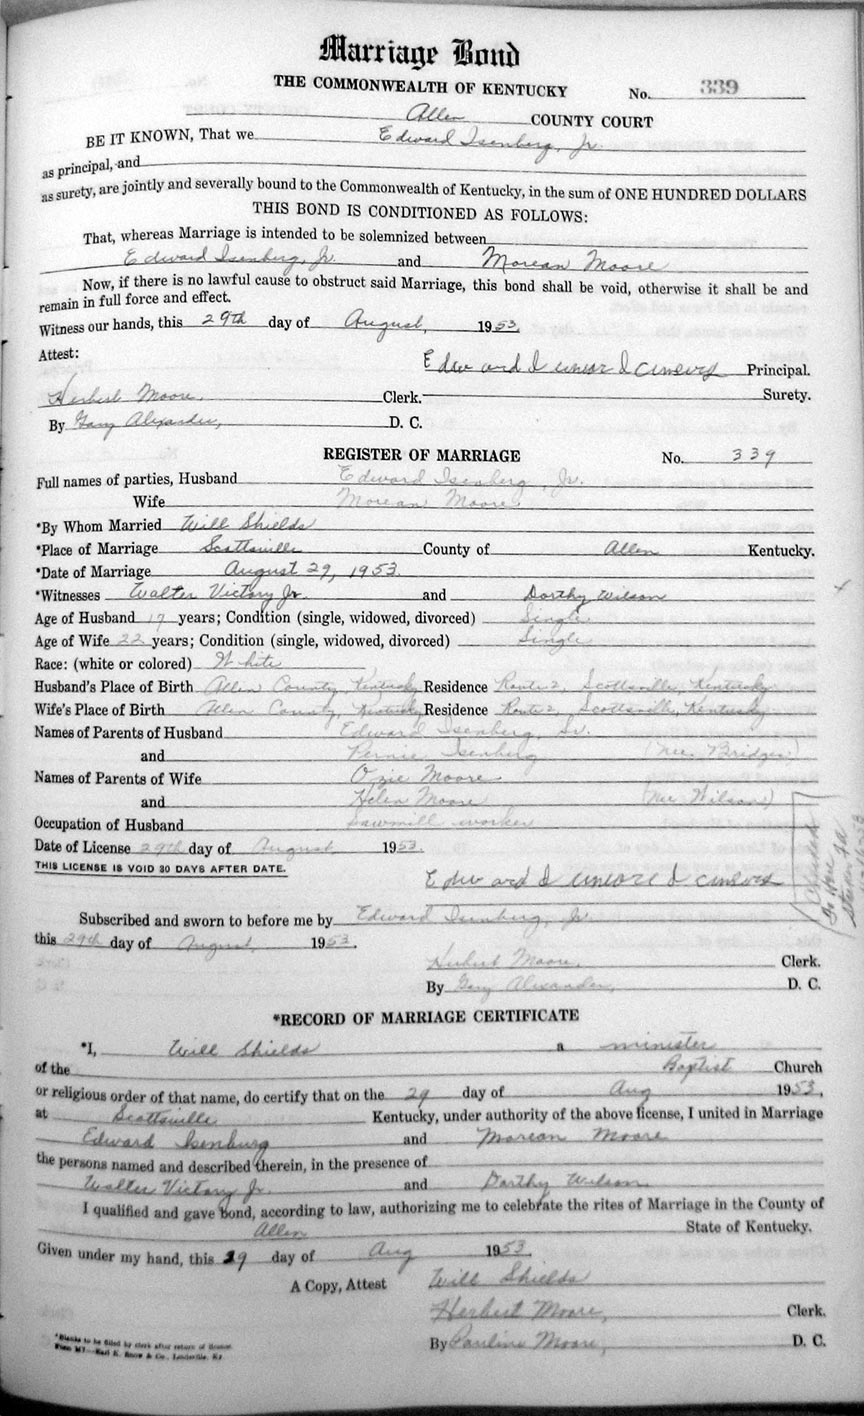 Marriage Bond
THE COMMONWEALTH OF KENTUCKY No. 339
Allen COUNTY COURT
BE IT KNOWN, That we Edward Isenberg, Jr.
as principal, and
as surety, are jointly and severally bound to the Commonwealth of Kentucky, in the sum of ONE HUNDRED DOLLARS
THIS BOND IS CONDITIONED AS FOLLOWS:
That, whereas Marriage is intended to be solemnized between
Edward Isenberg, Jr. and Morean Moore
Now, if there is no lawful cause to obstruct said Marriage, this bond shall be void, otherwise it shall be and
remain in full force and effect.
Witness our hands, this 29th day of August, 1953.
Attest:
Edward Principal.
Herbert Moore, Clerk. Surety.
By Gary Alexander, D. C.
REGISTER OF MARRIAGE No. 339
Full names of parties, Husband Edward Isenberg, Jr.
Wife Morean Moore
*By Whom Married Will Shields
*Place of Marriage Scottsville County of Allen Kentucky.
*Date of Marriage August 29, 1953.
*Witnesses Walter Victory Jr. and Dorthy Wilson
Age of Husband 17 years; Condition (single, widowed, divorced) Single
Age of Wife 22 years; Condition (single, widowed, divorced) Single
Race: (white or colored) White
Husband's Place of Birth Allen County, Kentucky Residence Route 2, Scottsville, Kentucky
Wife's Place of Birth Allen County, Kentucky Residence Route 2, Scottsville, Kentucky
Names of Parents of Husband Edward Isenberg, Sr.
and Pernie Isenberg (Nee Bridges)
Names of Parents of Wife Ozie Moore
and Helen Moore (Nee Wilson)
Occupation of Husband Sawmill worker
Date of License 29th day of August 1953.
THIS LICENSE IS VOID 30 DAYS AFTER DATE.
Edward
Subscribed and sworn to before me by Edward Isenberg, Jr.
this 29th day of August, 1953.
Herbert Moore, Clerk.
By Gary Alexander, D. C.
*RECORD OF MARRIAGE CERTIFICATE
*I, Will Shields a minister
of the Baptist Church
or religious order of that name, do certify that on the 29 day of Aug 1953,
at Scottsville Kentucky, under authority of the above license, I united in Marriage
Edward Isenburg and Morean Moore
the persons named and described therein, in the presence of
Walter Victory Jr. and Dorthy Wilson
I qualified and gave bond, according to law, authorizing me to celebrate the rites of Marriage in the County of
Allen State of Kentucky.
Given under my hand, this 29 day of Aug 1953.
A Copy, Attest Will Shields
Herbert Moore, Clerk.
By Pauline Moore, D. C.
*Blanks to be filled by clerk after return of license.
Form M7—Earl K. & Co., Louisville, Ky.